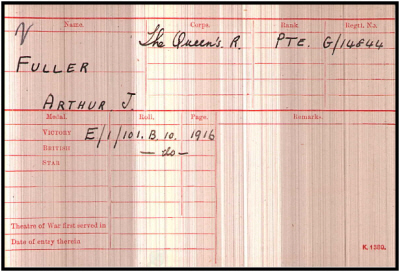 Name. Corps. Rank. Regtl. No.
The Queen's R. PTE. G/14844
FULLER
ARTHUR J.
Medal. Roll. Page. Remarks.
VICTORY E/1/101. B 10. 1916
BRITISH — do —
STAR
Theatre of War first served in
Date of entry therein
K. 1380.